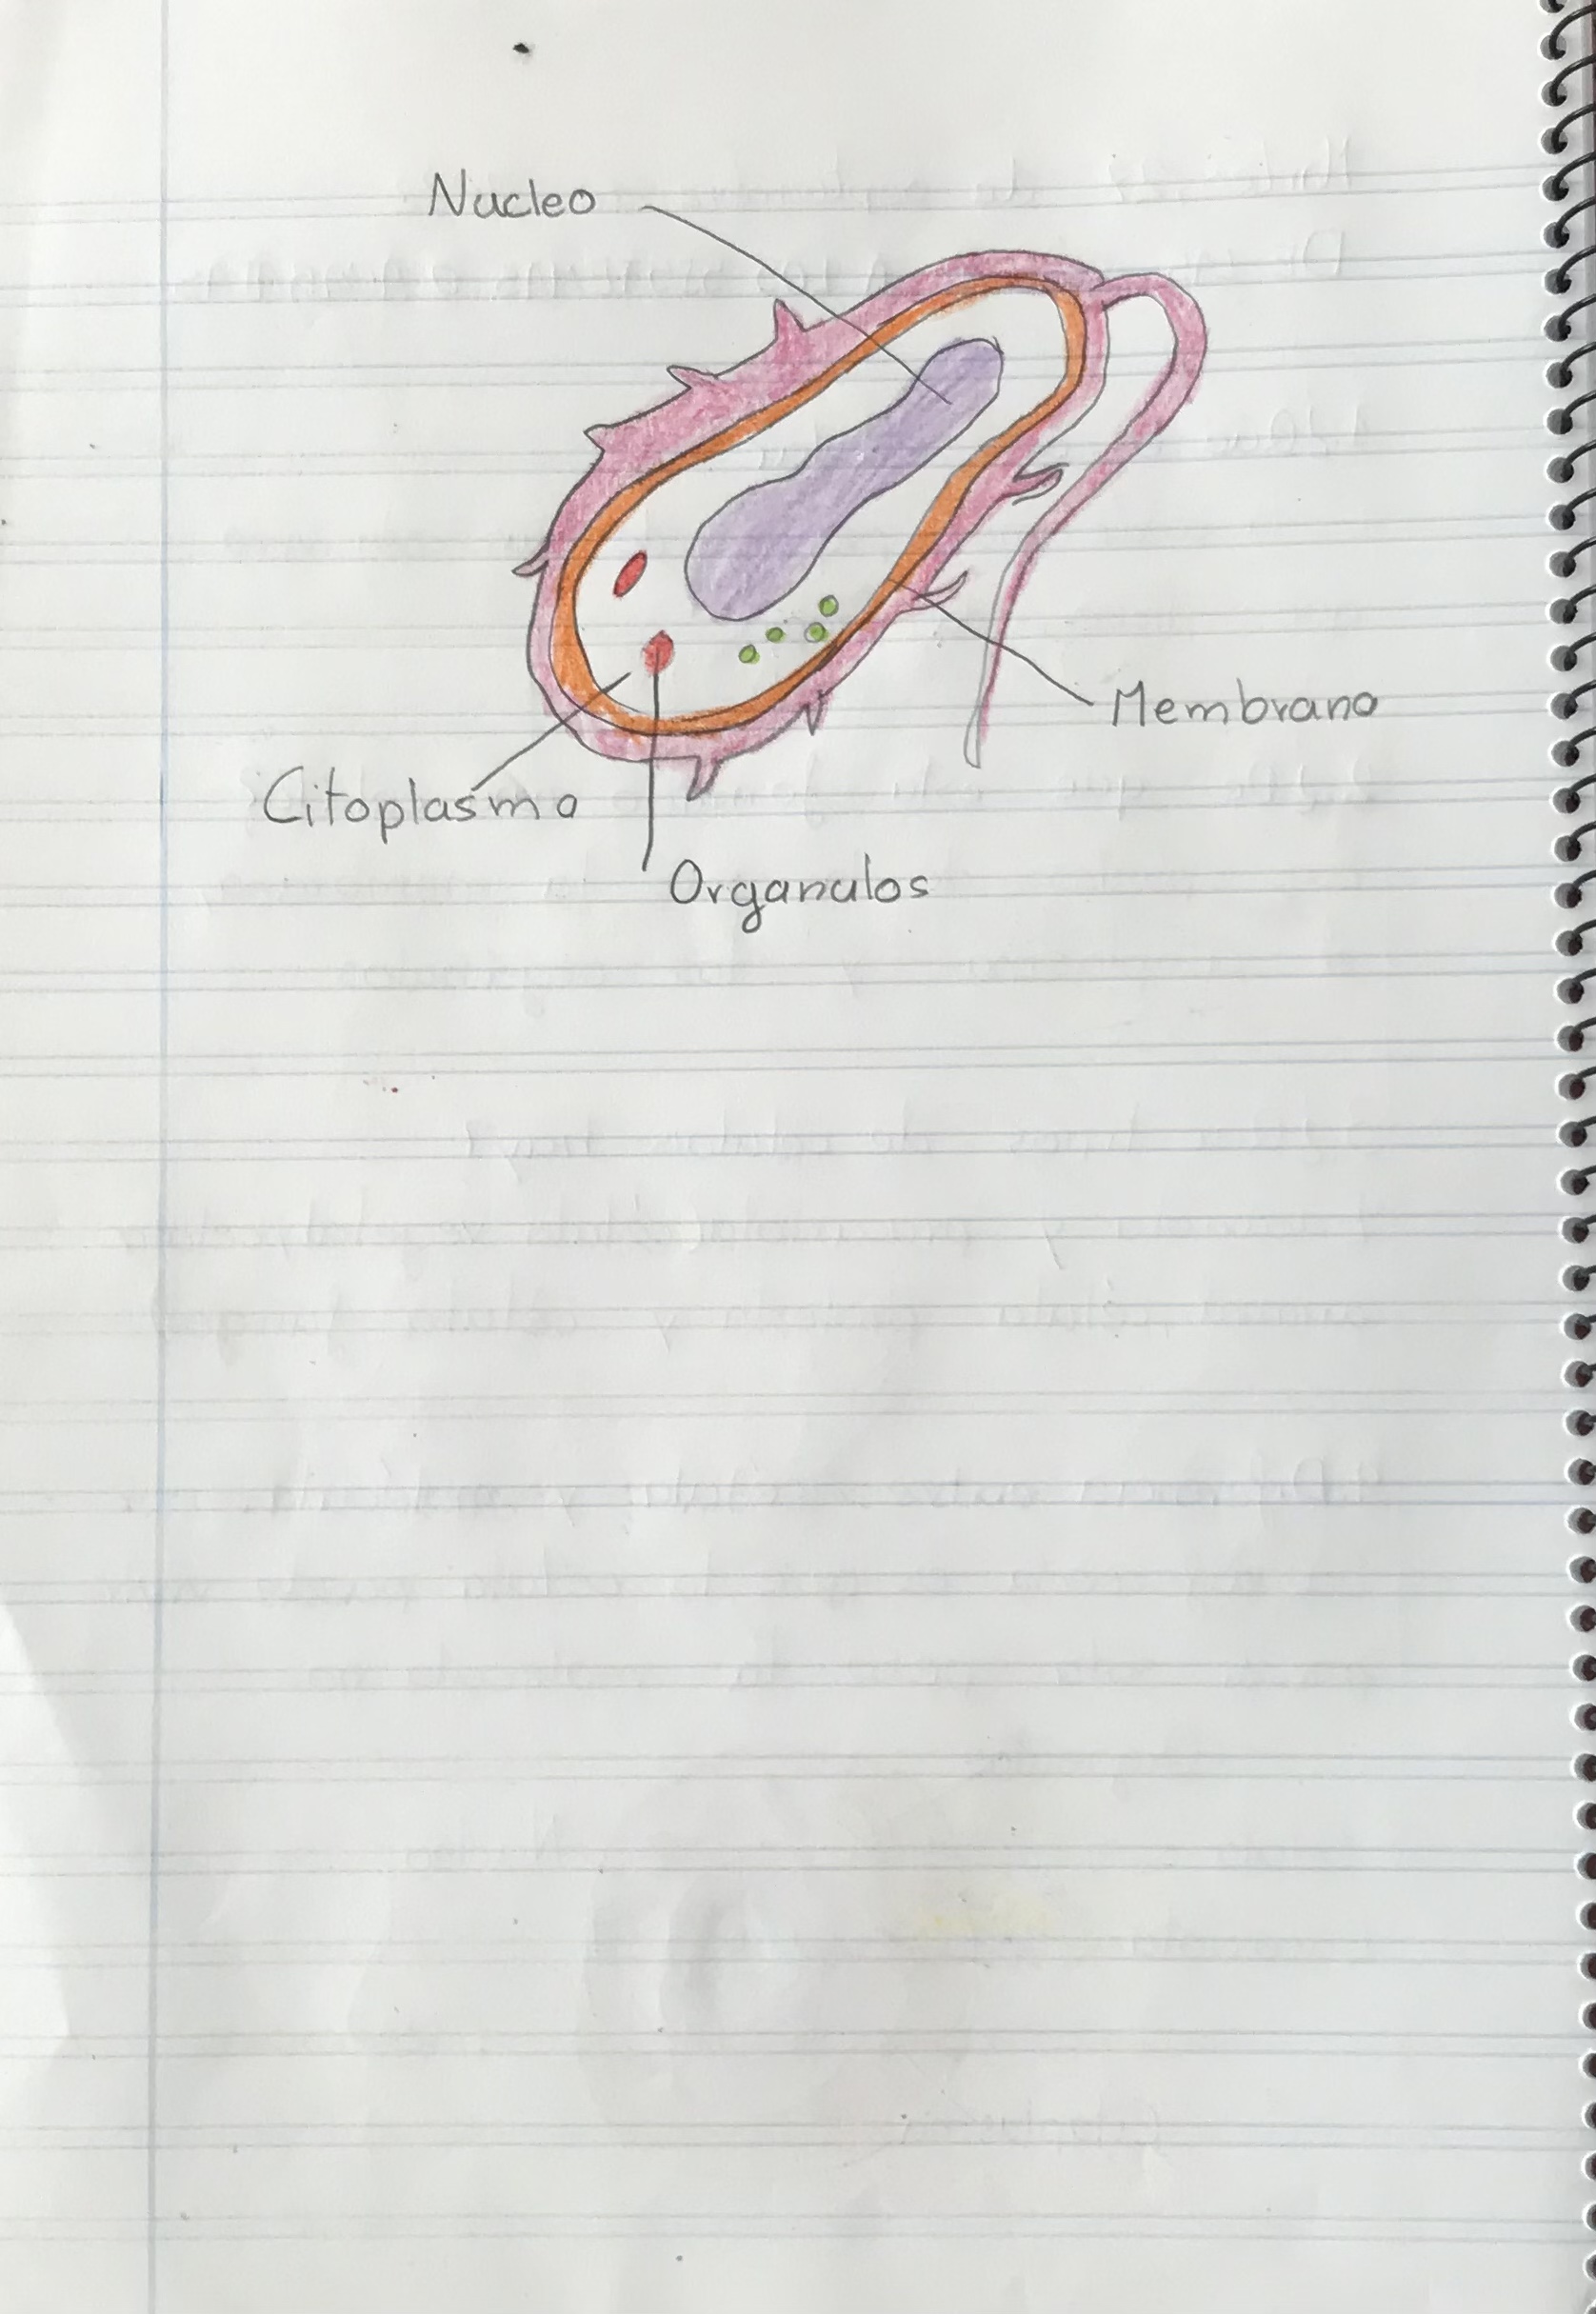 Nucleo
Membrana
Citoplasma
Organulos